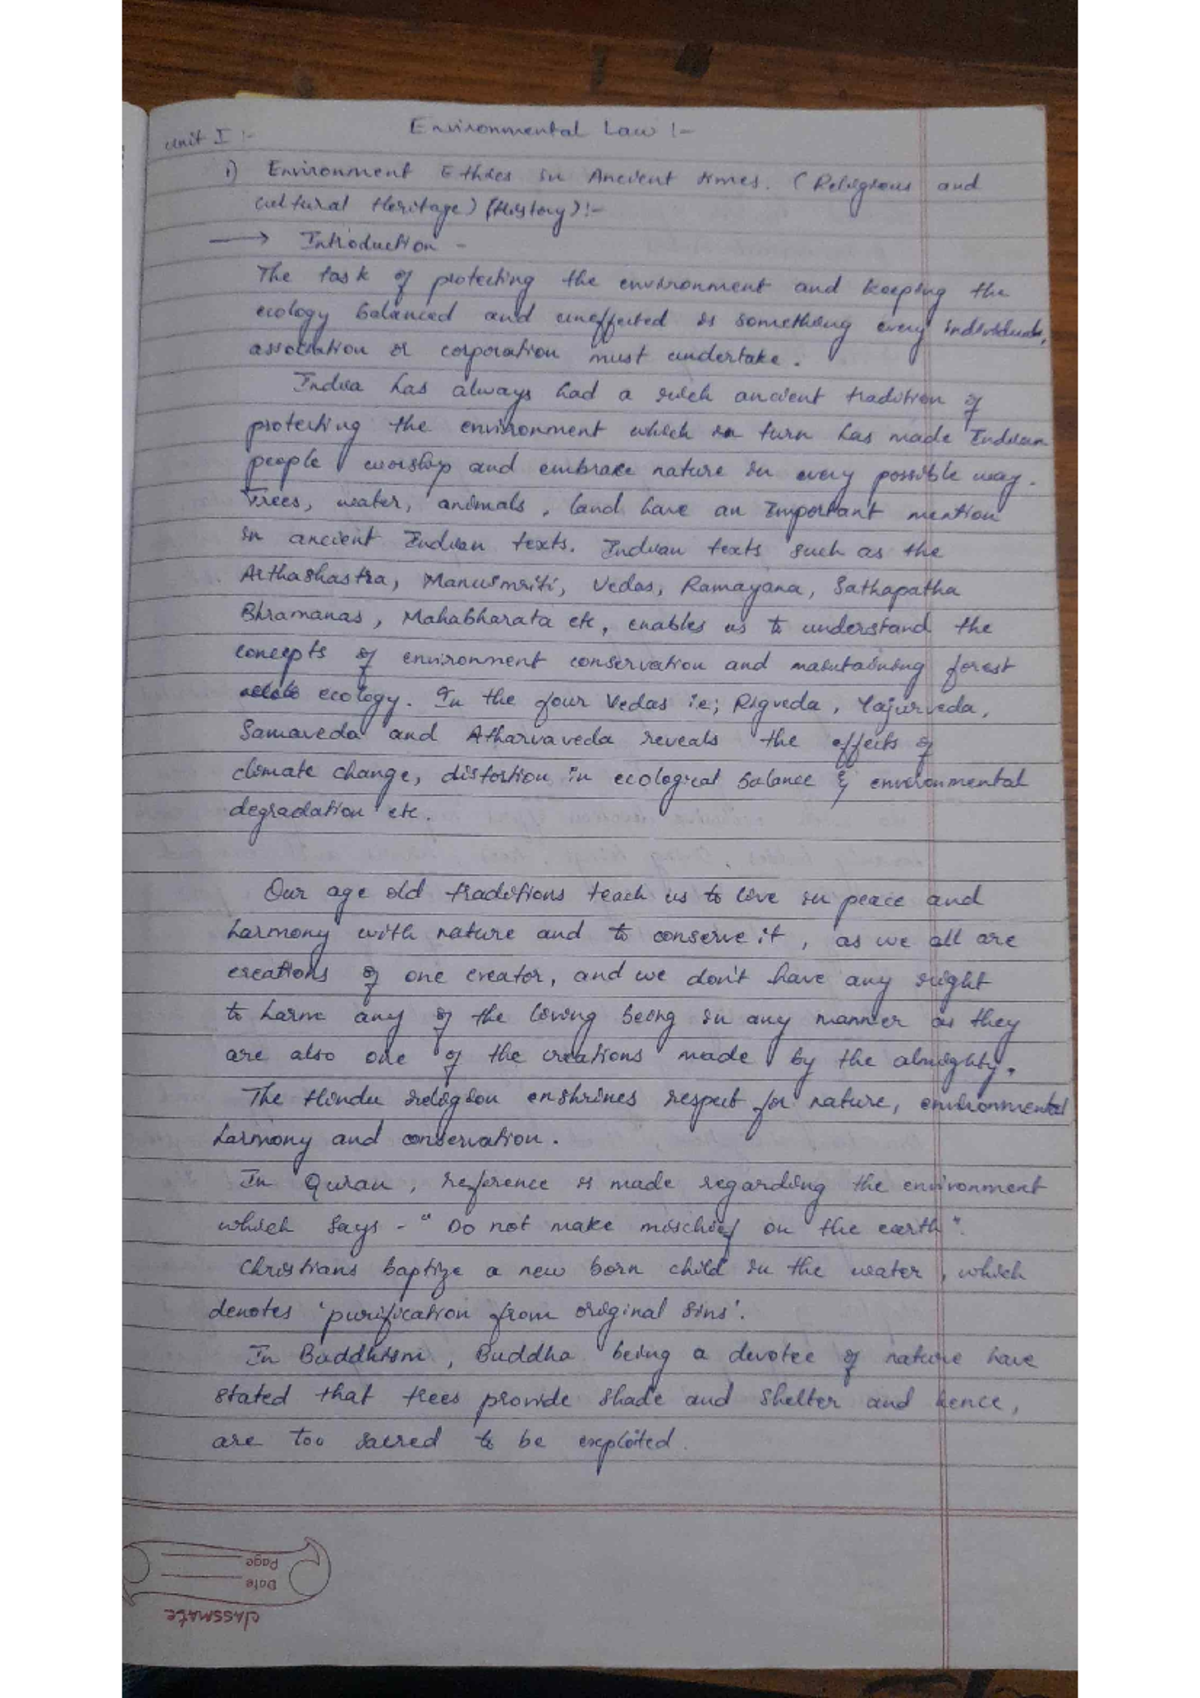 Environmental Law :-
Unit I :-
i) Environment Ethics in Ancient times. (Religious and
cultural Heritage) (History) :-
→ Introduction -
The task of protecting the environment and keeping the
ecology balanced and uneffected is something every individual,
association or corporation must undertake.
India has always had a rich ancient tradition of
protecting the environment which in turn has made Indian
people worship and embrace nature in every possible way.
Trees, water, animals, land have an important mention
in ancient Indian texts. Indian texts such as the
Arthashastra, Manusmriti, Vedas, Ramayana, Sathapatha
Bhramanas, Mahabharata etc, enables us to understand the
concepts of environment conservation and maintaining forest
ecology. In the four Vedas ie; Rigveda, Yajurveda,
Samaveda and Atharvaveda reveals the effects of
climate change, distortion in ecological balance & environmental
degradation etc.
Our age old traditions teach us to live in peace and
harmony with nature and to conserve it, as we all are
creations of one creator, and we don't have any right
to harm any of the living being in any manner as they
are also one of the creations made by the almighty.
The Hindu religion enshrines respect for nature, environmental
harmony and conservation.
In Quran, reference is made regarding the environment
which says - "Do not make mischief on the earth".
Christians baptize a new born child in the water, which
denotes 'purification from original sins'.
In Buddhism, Buddha being a devotee of nature have
stated that trees provide shade and shelter and hence,
are too sacred to be exploited.
Page
Date
classmate